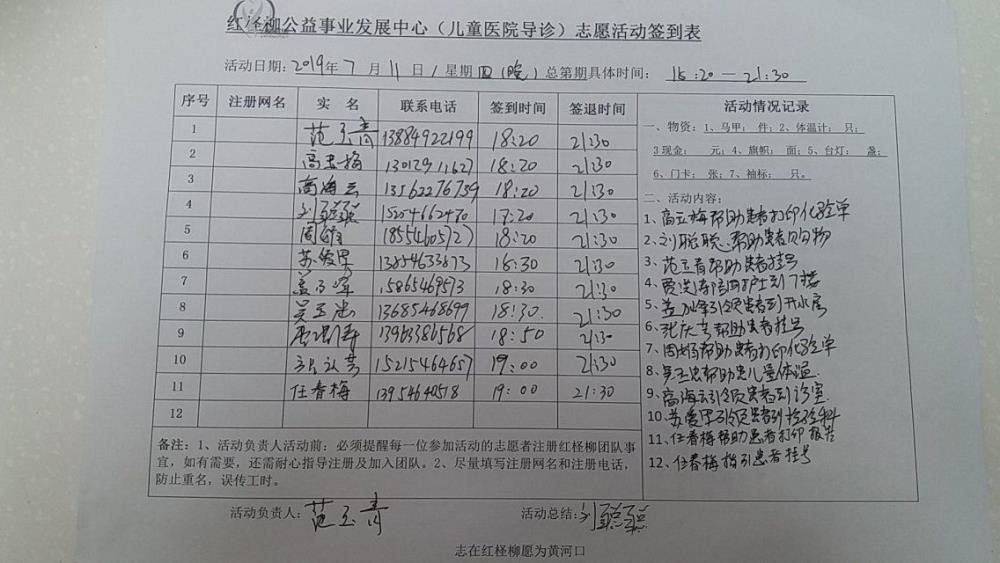 红柽柳公益事业发展中心（儿童医院导诊）志愿活动签到表
活动日期：2019年7月11日/星期四（晚）总第期具体时间：18:20—21:30
序号 注册网名 实 名 联系电话 签到时间 签退时间 活动情况记录
1 范玉青 13884922199 18:20 21:30
2 高玉梅 13012911627 18:20 21:30
3 高海云 13562276739 18:20 21:30
4 刘聪聪 15254662470 17:20 21:30
5 周 18554605727 18:20 21:30
6 苏爱军 13854633873 18:30 21:30
7 盖 15865469573 18:30 21:30
8 吴玉忠 13685468699 18:30. 21:30
9 13963386568 18:50 21:30
10 15215464657 19:00 21:30
11 任春梅 13954640518 19:00 21:30
12
一、物资：1、马甲： 件；2、体温计： 只；
3现金： 元；4、旗帜： 面；5、台灯： 盏；
6、门卡： 张；7、袖标： 只。
二、活动内容：
1、高玉梅帮助患者打印化验单
2、刘聪聪、帮助患者贝购物
3、范玉青帮助患者挂号
4、护士到门楼
5、引领患者到开水房
6、张庆芳帮助患者挂号
7、周 帮助患者打印化验单
8、吴玉忠帮助患儿量体温
9、高海云引领患者到诊室
10、苏爱军引领患者到检验科
11、任春梅帮助患者打印报告
12、任春梅指引患者挂号
备注：1、活动负责人活动前：必须提醒每一位参加活动的志愿者注册红柽柳团队事
宜，如有需要，还需耐心指导注册及加入团队。2、尽量填写注册网名和注册电话，
防止重名，误传工时。
活动负责人：范玉青 活动总结：刘聪聪
志在红柽柳愿为黄河口